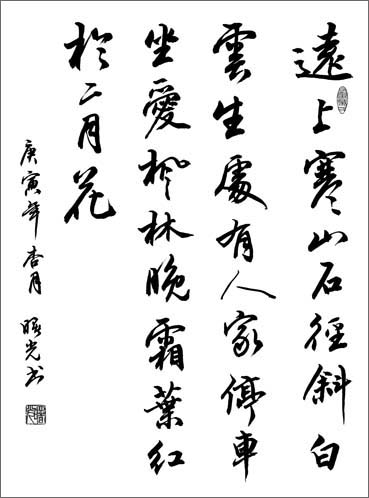 遠上寒山石徑斜白
雲生處有人家停車
坐愛楓林晚霜葉紅
於二月花
庚寅年杏月 曙光书